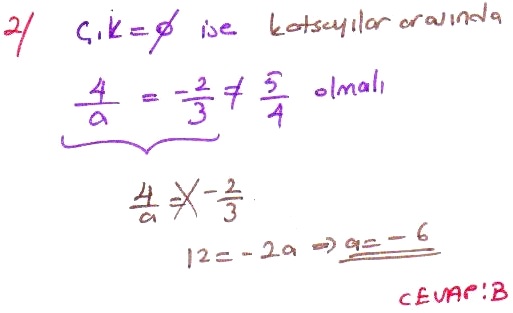 2/ Ç.k = ∅ ise katsayılar arasında
4/a = -2/3 ≠ 5/4 olmalı
4/a = -2/3
12 = -2a ⇒ a = -6
CEVAP: B